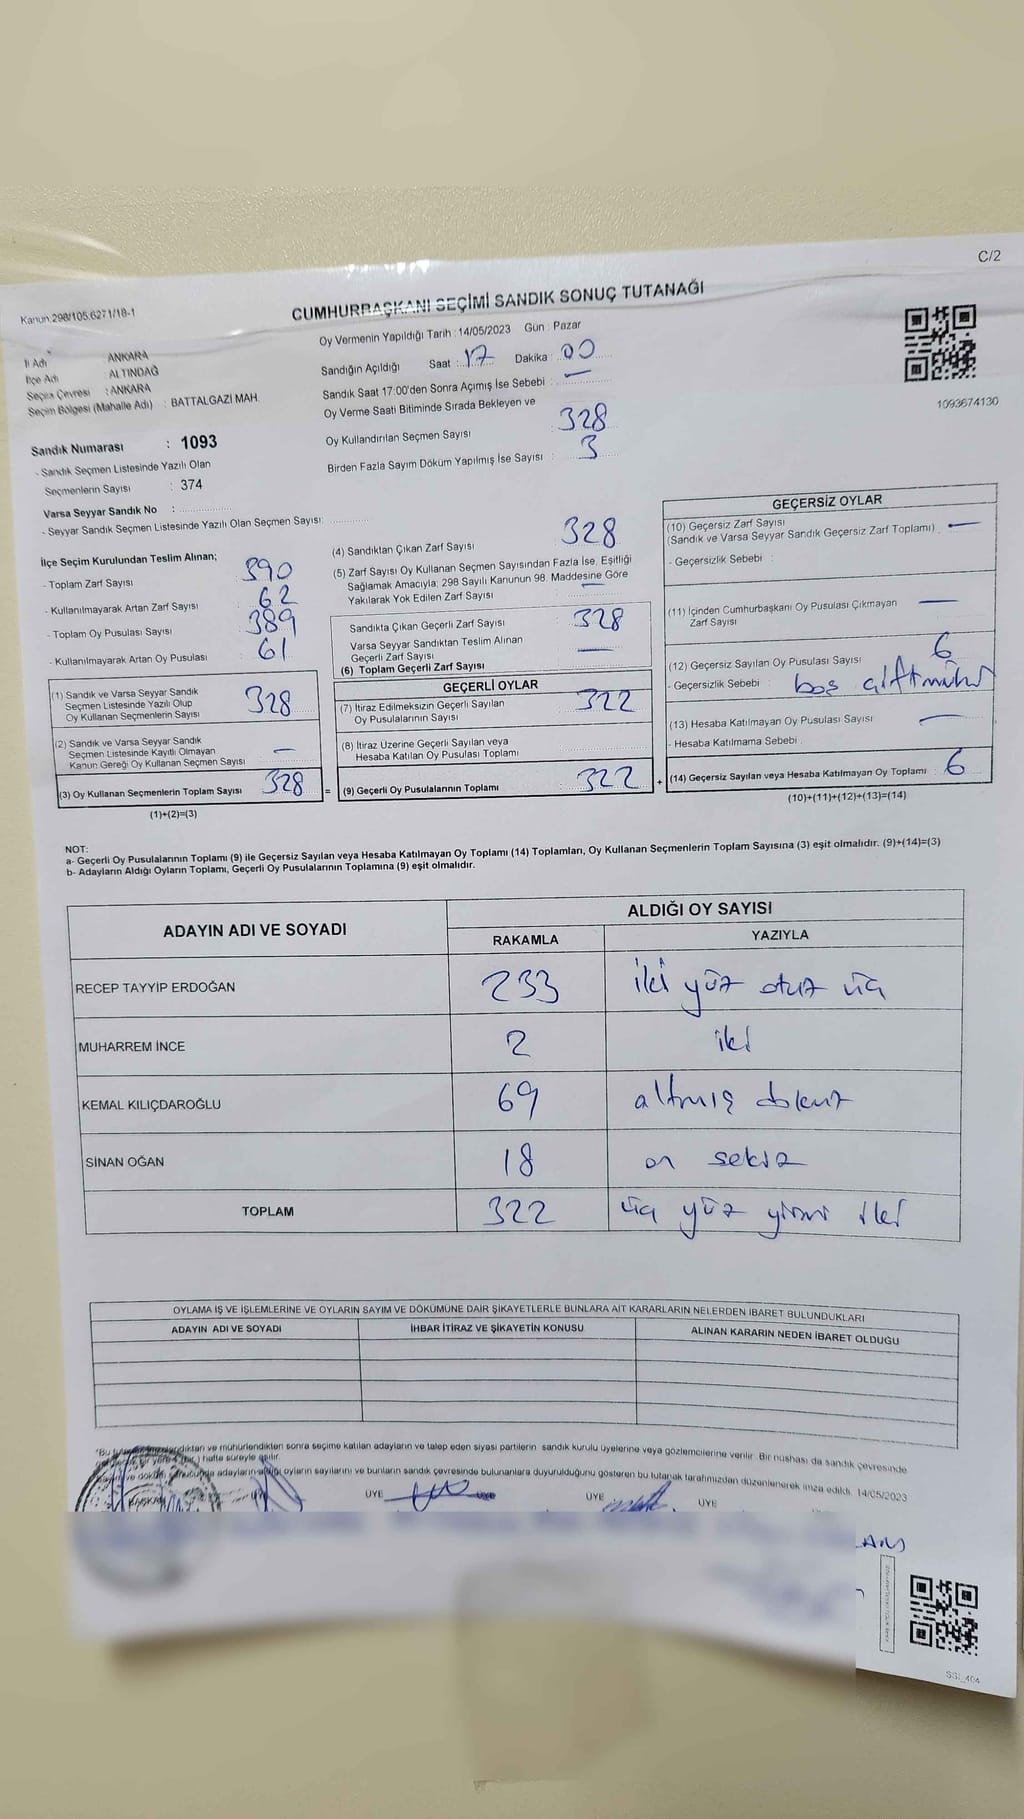 C/2
Kanun.298/105.6271/18-1
CUMHURBAŞKANI SEÇİMİ SANDIK SONUÇ TUTANAĞI
İl Adı : ANKARA
İlçe Adı : ALTINDAĞ
Seçim Çevresi : ANKARA
Seçim Bölgesi (Mahalle Adı) : BATTALGAZİ MAH.
Oy Vermenin Yapıldığı Tarih : 14/05/2023 Gün : Pazar
Sandığın Açıldığı Saat : 17 Dakika : 00
Sandık Saat 17:00'den Sonra Açımış İse Sebebi : —
Oy Verme Saati Bitiminde Sırada Bekleyen ve
Oy Kullandırılan Seçmen Sayısı : 328
Birden Fazla Sayım Döküm Yapılmış İse Sayısı : 3
1093674130
Sandık Numarası : 1093
- Sandık Seçmen Listesinde Yazılı Olan
Seçmenlerin Sayısı : 374
Varsa Seyyar Sandık No :
- Seyyar Sandık Seçmen Listesinde Yazılı Olan Seçmen Sayısı:
İlçe Seçim Kurulundan Teslim Alınan;
- Toplam Zarf Sayısı : 390
- Kullanılmayarak Artan Zarf Sayısı : 62
- Toplam Oy Pusulası Sayısı : 389
- Kullanılmayarak Artan Oy Pusulası : 61
(1) Sandık ve Varsa Seyyar Sandık
Seçmen Listesinde Yazılı Olup
Oy Kullanan Seçmenlerin Sayısı : 328
(2) Sandık ve Varsa Seyyar Sandık
Seçmen Listesinde Kayıtlı Olmayan
Kanun Gereği Oy Kullanan Seçmen Sayısı : —
(3) Oy Kullanan Seçmenlerin Toplam Sayısı : 328
(1)+(2)=(3)
(4) Sandıktan Çıkan Zarf Sayısı : 328
(5) Zarf Sayısı Oy Kullanan Seçmen Sayısından Fazla İse, Eşitliği
Sağlamak Amacıyla; 298 Sayılı Kanunun 98. Maddesine Göre
Yakılarak Yok Edilen Zarf Sayısı : —
Sandıkta Çıkan Geçerli Zarf Sayısı : 328
Varsa Seyyar Sandıktan Teslim Alınan
Geçerli Zarf Sayısı : —
(6) Toplam Geçerli Zarf Sayısı
GEÇERLİ OYLAR
(7) İtiraz Edilmeksizin Geçerli Sayılan
Oy Pusulalarının Sayısı : 322
(8) İtiraz Üzerine Geçerli Sayılan veya
Hesaba Katılan Oy Pusulası Toplamı :
= (9) Geçerli Oy Pusulalarının Toplamı : 322
GEÇERSİZ OYLAR
(10) Geçersiz Zarf Sayısı
(Sandık ve Varsa Seyyar Sandık Geçersiz Zarf Toplamı) : —
- Geçersizlik Sebebi :
(11) İçinden Cumhurbaşkanı Oy Pusulası Çıkmayan : —
Zarf Sayısı
(12) Geçersiz Sayılan Oy Pusulası Sayısı : 6
- Geçersizlik Sebebi : boş çift mühür
(13) Hesaba Katılmayan Oy Pusulası Sayısı : —
- Hesaba Katılmama Sebebi :
+ (14) Geçersiz Sayılan veya Hesaba Katılmayan Oy Toplamı : 6
(10)+(11)+(12)+(13)=(14)
NOT:
a- Geçerli Oy Pusulalarının Toplamı (9) ile Geçersiz Sayılan veya Hesaba Katılmayan Oy Toplamı (14) Toplamları, Oy Kullanan Seçmenlerin Toplam Sayısına (3) eşit olmalıdır. (9)+(14)=(3)
b- Adayların Aldığı Oyların Toplamı, Geçerli Oy Pusulalarının Toplamına (9) eşit olmalıdır.
ADAYIN ADI VE SOYADI ALDIĞI OY SAYISI
RAKAMLA YAZIYLA
RECEP TAYYİP ERDOĞAN 233 iki yüz otuz üç
MUHARREM İNCE 2 iki
KEMAL KILIÇDAROĞLU 69 altmış dokuz
SİNAN OĞAN 18 on sekiz
TOPLAM 322 üç yüz yirmi iki
OYLAMA İŞ VE İŞLEMLERİNE VE OYLARIN SAYIM VE DÖKÜMÜNE DAİR ŞİKAYETLERLE BUNLARA AİT KARARLARIN NELERDEN İBARET BULUNDUKLARI
ADAYIN ADI VE SOYADI İHBAR İTİRAZ VE ŞİKAYETİN KONUSU ALINAN KARARIN NEDEN İBARET OLDUĞU
ve mühürlendikten sonra seçime katılan adayların ve talep eden siyasi partilerin sandık kurulu üyelerine veya gözlemcilerine verilir. Bir nüshası da sandık çevresinde
hafta süreyle asılır.
oyların sayılarını ve bunların sandık çevresinde bulunanlara duyurulduğunu gösteren bu tutanak tarafımızdan düzenlenerek imza edildi. 14/05/2023
BAŞKAN ÜYE ÜYE ÜYE ÜYE
SSİ_404